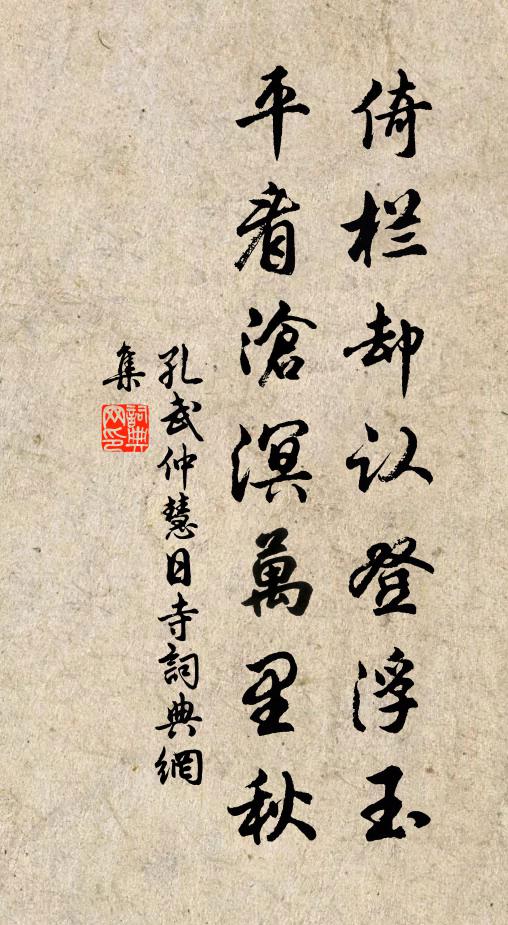 倚栏却认登浮玉
平看滄溟萬里秋
孔武仲慧日寺詞典網
集
詞典
网印